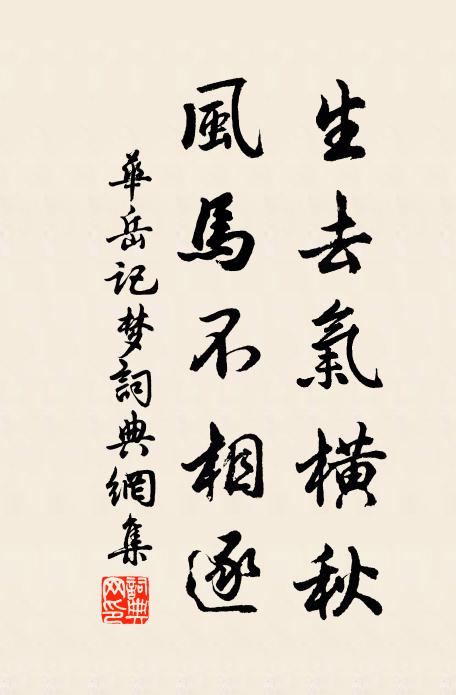 生去氣橫秋
風馬不相逐
華岳记梦詞典網集
詞典网印